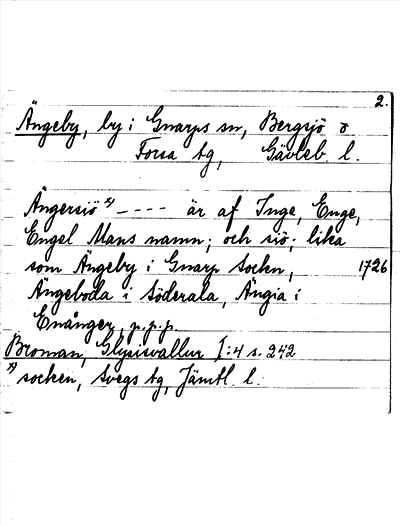 2.
Ängeby, by i Gnarps sn, Bergsjö o
Forsa tg, Gävleb. l.
Ängersiö x) - - - - är af Inge, Enge,
Engel Mans namn; och siö; lika
som Ängeby i Gnarp Socken, 1726
Ängeboda i Söderala, Ängia i
Enånger, p.p.p.
Broman, Glysisvallur I:4 s. 242
x) socken, Svegs tg, Jämtl. l.